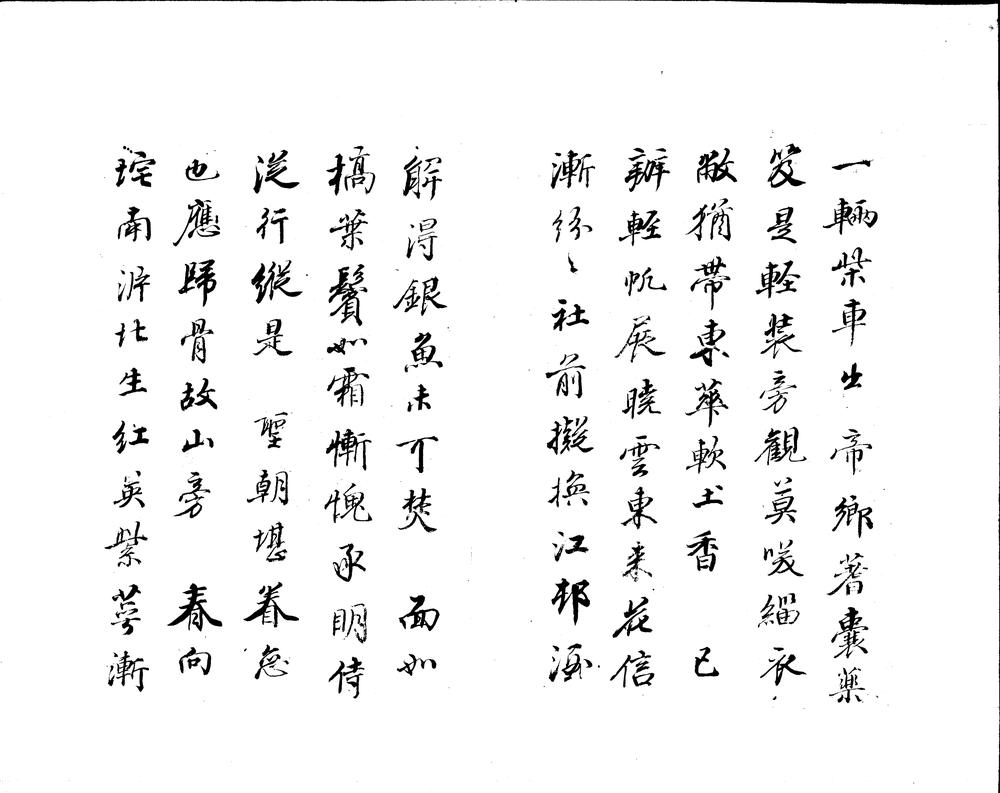 一輛柴車出 帝鄉蓍囊藥
笈是輕装旁觀莫咲緇衣
敝猶帶東華軟土香 已
辦輕帆展曉雲東来花信
漸紛〻社前擬換江邨酒
解得銀魚未可焚 面如
槁葉鬢如霜慚愧承明侍
從行縱是 聖朝堪眷念
也應歸骨故山旁 春向
垞南沜北生紅英紫萼漸